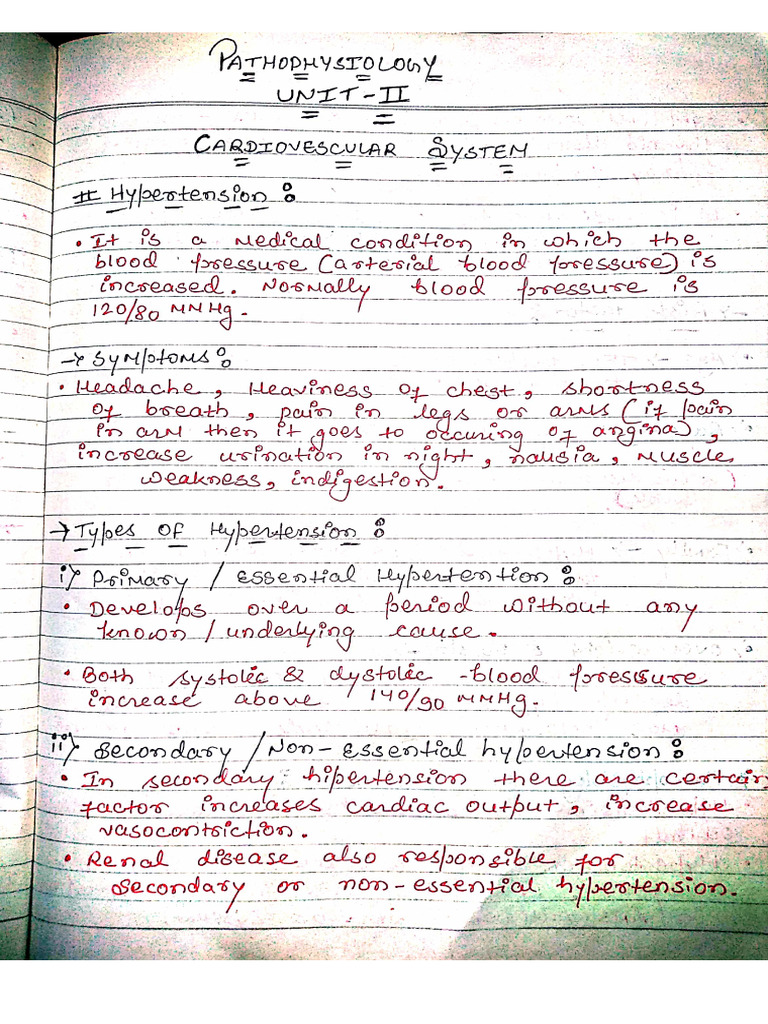 PATHOPHYSIOLOGY
UNIT-II
CARDIOVESCULAR SYSTEM
# Hypertension :
• It is a medical condition in which the
blood pressure (arterial blood pressure) is
increased. Normally blood pressure is
120/80 MMHg.
→ Symptoms :
• Headache, Heaviness of chest, shortness
of breath, pain in legs or arms (if pain
in arm then it goes to occuring of angina),
increase urination in night, nausia, Muscle
weakness, indigestion.
→ Types of Hypertension :
i) Primary / Essential Hypertention :
• Develops over a period without any
known / underlying cause.
• Both systolic & dystolic -blood pressure
increase above 140/90 MMHg.
ii) Secondary / Non-Essential hypertension :
• In secondary hipertension there are certain
factor increases cardiac output, increase
vasocontriction.
• Renal disease also responsible for
secondary or non-essential hypertension.